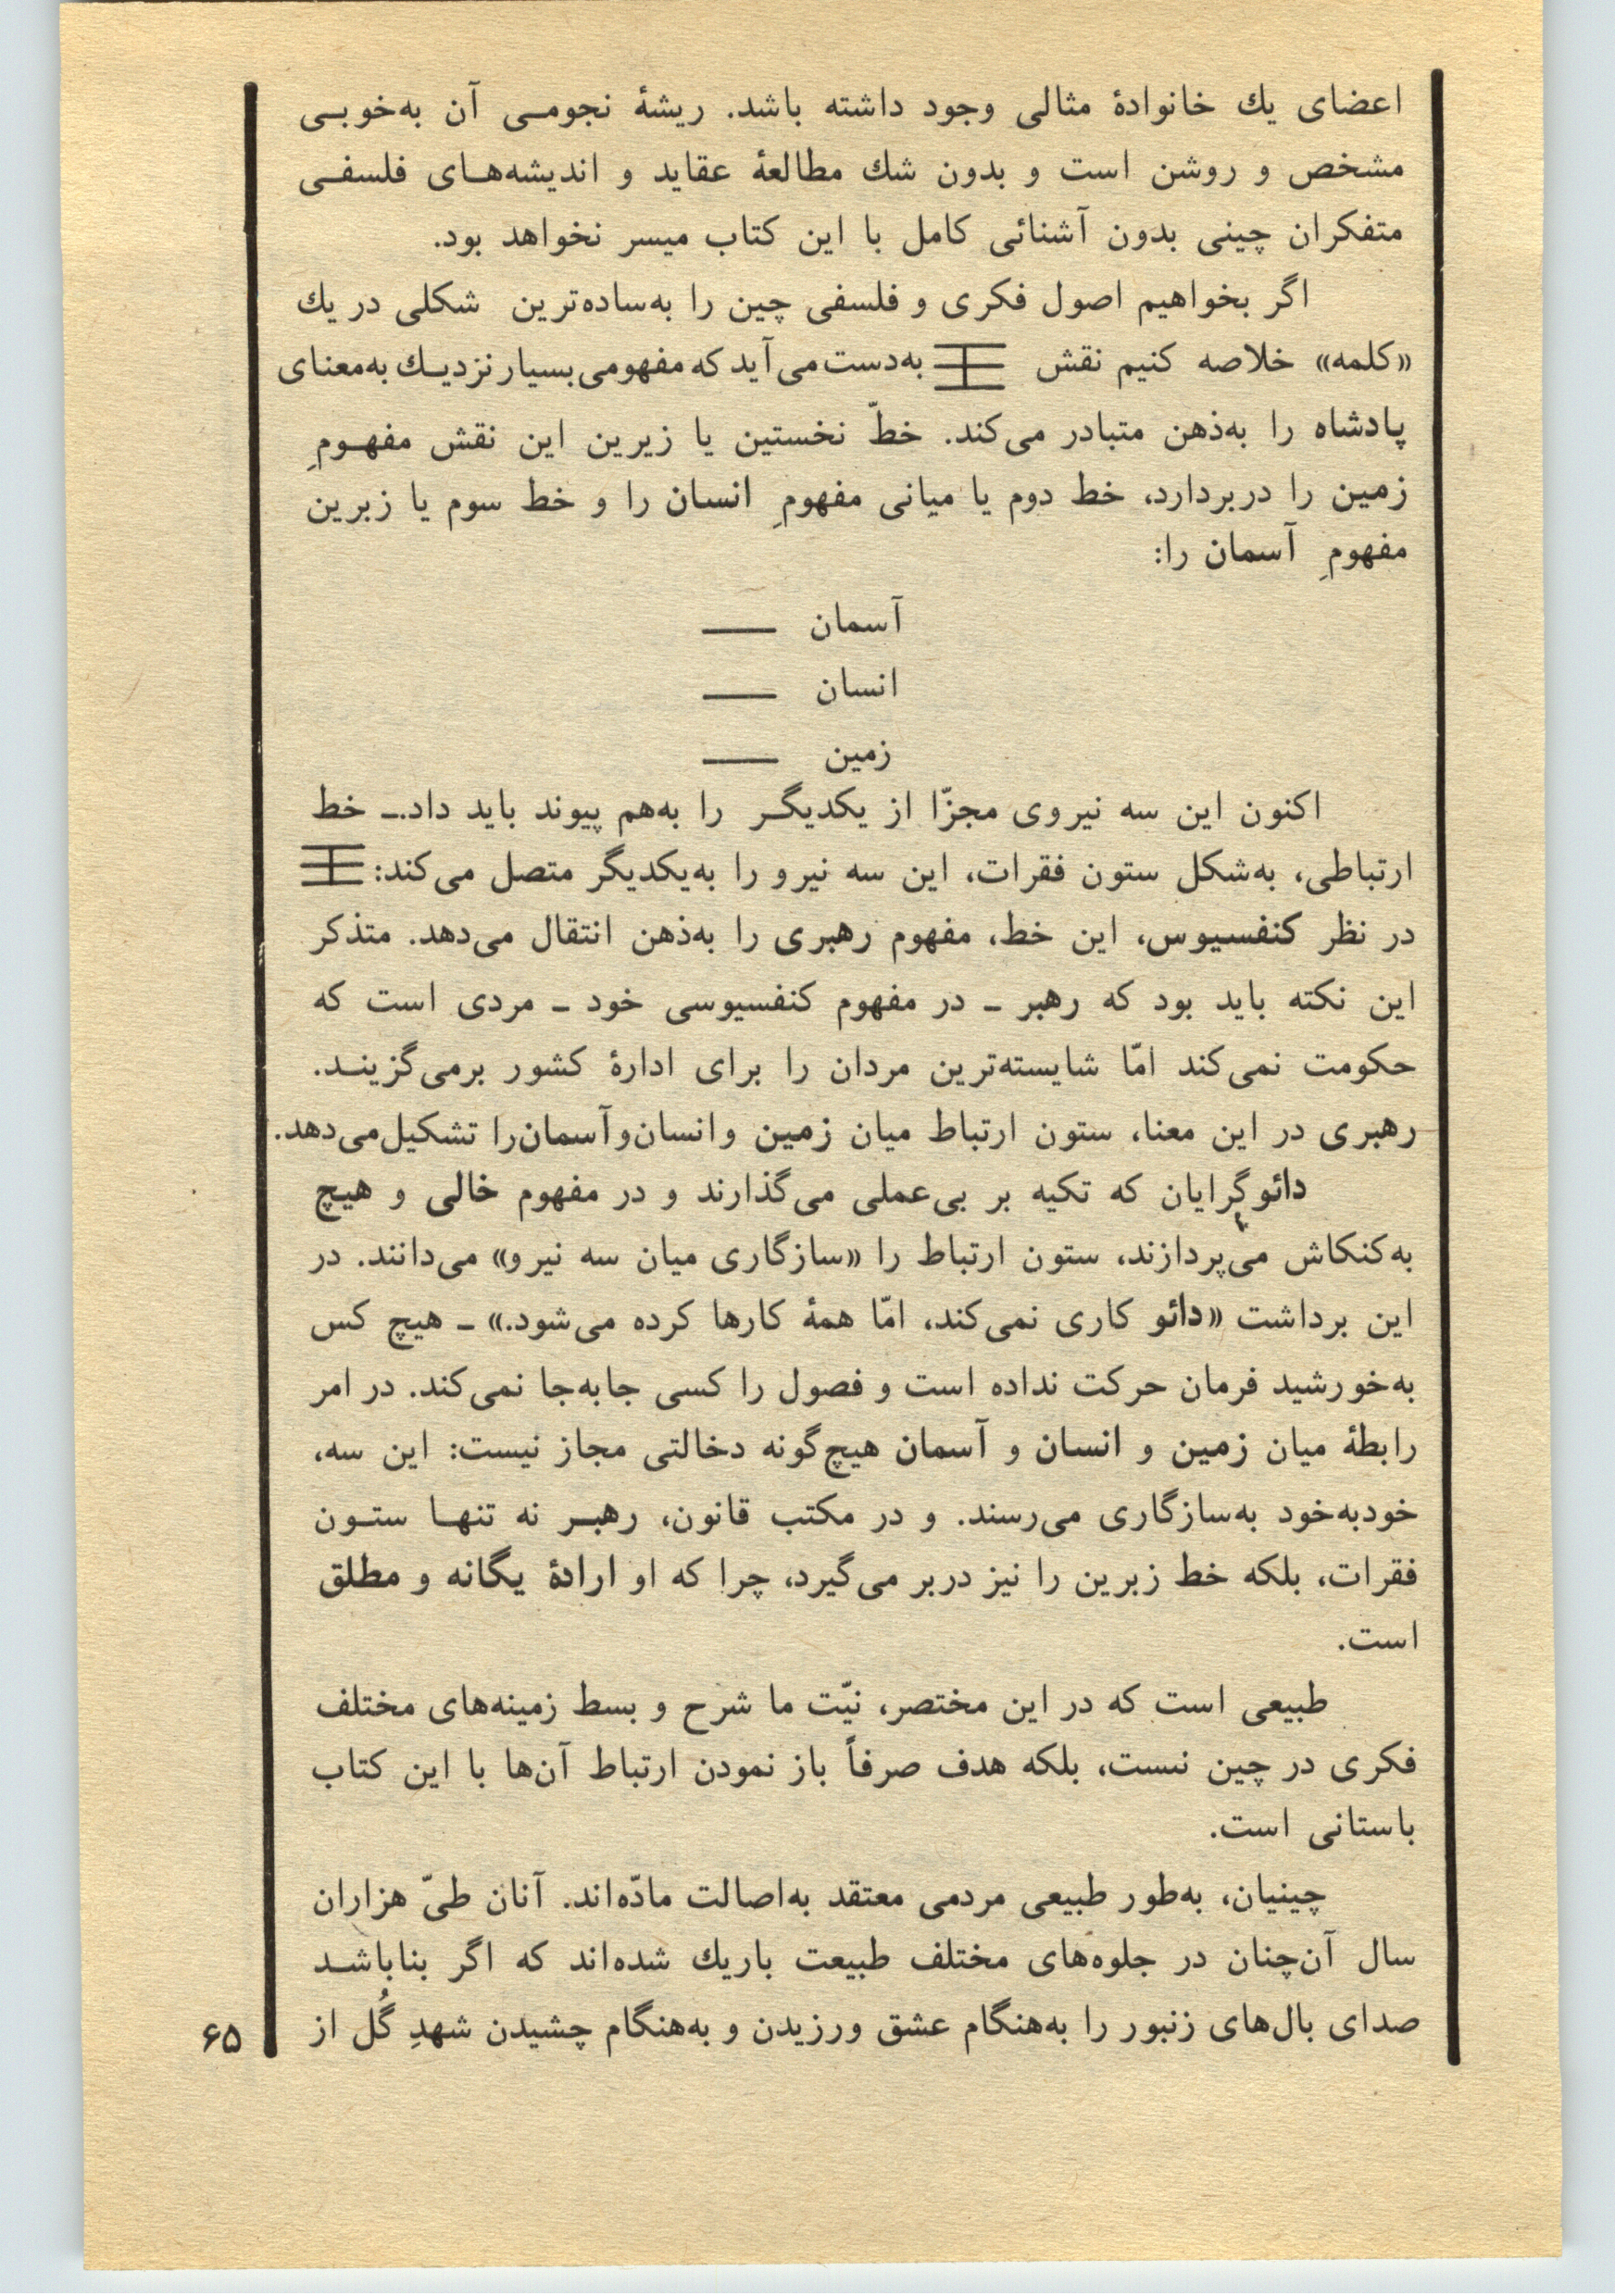 اعضای یك خانوادۀ مثالی وجود داشته باشد. ریشۀ نجومـی آن به‌خوبـی
مشخص و روشن است و بدون شك مطالعۀ عقاید و اندیشه‌هـای فلسفـی
متفکران چینی بدون آشنائی کامل با این کتاب میسر نخواهد بود.
اگر بخواهیم اصول فکری و فلسفی چین را به‌ساده‌ترین شکلی در یك
«کلمه» خلاصه کنیم نقش 王 به‌دست می‌آید که مفهومی بسیار نزدیـك به‌معنای
پادشاه را به‌ذهن متبادر می‌کند. خطّ نخستین یا زیرین این نقش مفهـومِ
زمین را دربردارد، خط دوم یا میانی مفهومِ انسان را و خط سوم یا زبرین
مفهومِ آسمان را:
آسمان ——
انسان ——
زمین ——
اکنون این سه نیروی مجزّا از یکدیگـر را به‌هم پیوند باید داد.ـ خط
ارتباطی، به‌شکل ستون فقرات، این سه نیرو را به‌یکدیگر متصل می‌کند: 王
در نظر کنفسیوس، این خط، مفهوم رهبری را به‌ذهن انتقال می‌دهد. متذکر
این نکته باید بود که رهبر ـ در مفهوم کنفسیوسی خود ـ مردی است که
حکومت نمی‌کند امّا شایسته‌ترین مردان را برای ادارۀ کشور برمی‌گزینـد.
رهبری در این معنا، ستون ارتباط میان زمین و انسان و آسمان را تشکیل می‌دهد.
دائوگرایان که تکیه بر بی‌عملی می‌گذارند و در مفهوم خالی و هیچ
به‌کنکاش می‌پردازند، ستون ارتباط را «سازگاری میان سه نیرو» می‌دانند. در
این برداشت «دائو کاری نمی‌کند، امّا همۀ کارها کرده می‌شود.» ـ هیچ کس
به‌خورشید فرمان حرکت نداده است و فصول را کسی جابه‌جا نمی‌کند. در امر
رابطۀ میان زمین و انسان و آسمان هیچ‌گونه دخالتی مجاز نیست: این سه،
خودبه‌خود به‌سازگاری می‌رسند. و در مکتب قانون، رهبـر نه تنهـا ستـون
فقرات، بلکه خط زبرین را نیز دربر می‌گیرد، چرا که او ارادۀ یگانه و مطلق
است.
طبیعی است که در این مختصر، نیّت ما شرح و بسط زمینه‌های مختلف
فکری در چین نیست، بلکه هدف صرفاً باز نمودن ارتباط آن‌ها با این کتاب
باستانی است.
چینیان، به‌طور طبیعی مردمی معتقد به‌اصالت مادّه‌اند. آنان طیّ هزاران
سال آن‌چنان در جلوه‌های مختلف طبیعت باریك شده‌اند که اگر بناباشـد
صدای بال‌های زنبور را به‌هنگام عشق ورزیدن و به‌هنگام چشیدن شهدِ گُل از
۶۵